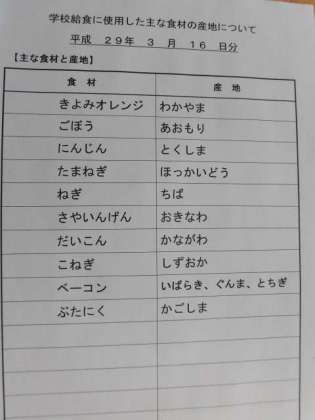 学校給食に使用した主な食材の産地について
平成 29年 3 月 16 日分
【主な食材と産地】
食 材 産 地
きよみオレンジ わかやま
ごぼう あおもり
にんじん とくしま
たまねぎ ほっかいどう
ねぎ ちば
さやいんげん おきなわ
だいこん かながわ
こねぎ しずおか
ベーコン いばらき、ぐんま、とちぎ
ぶたにく かごしま